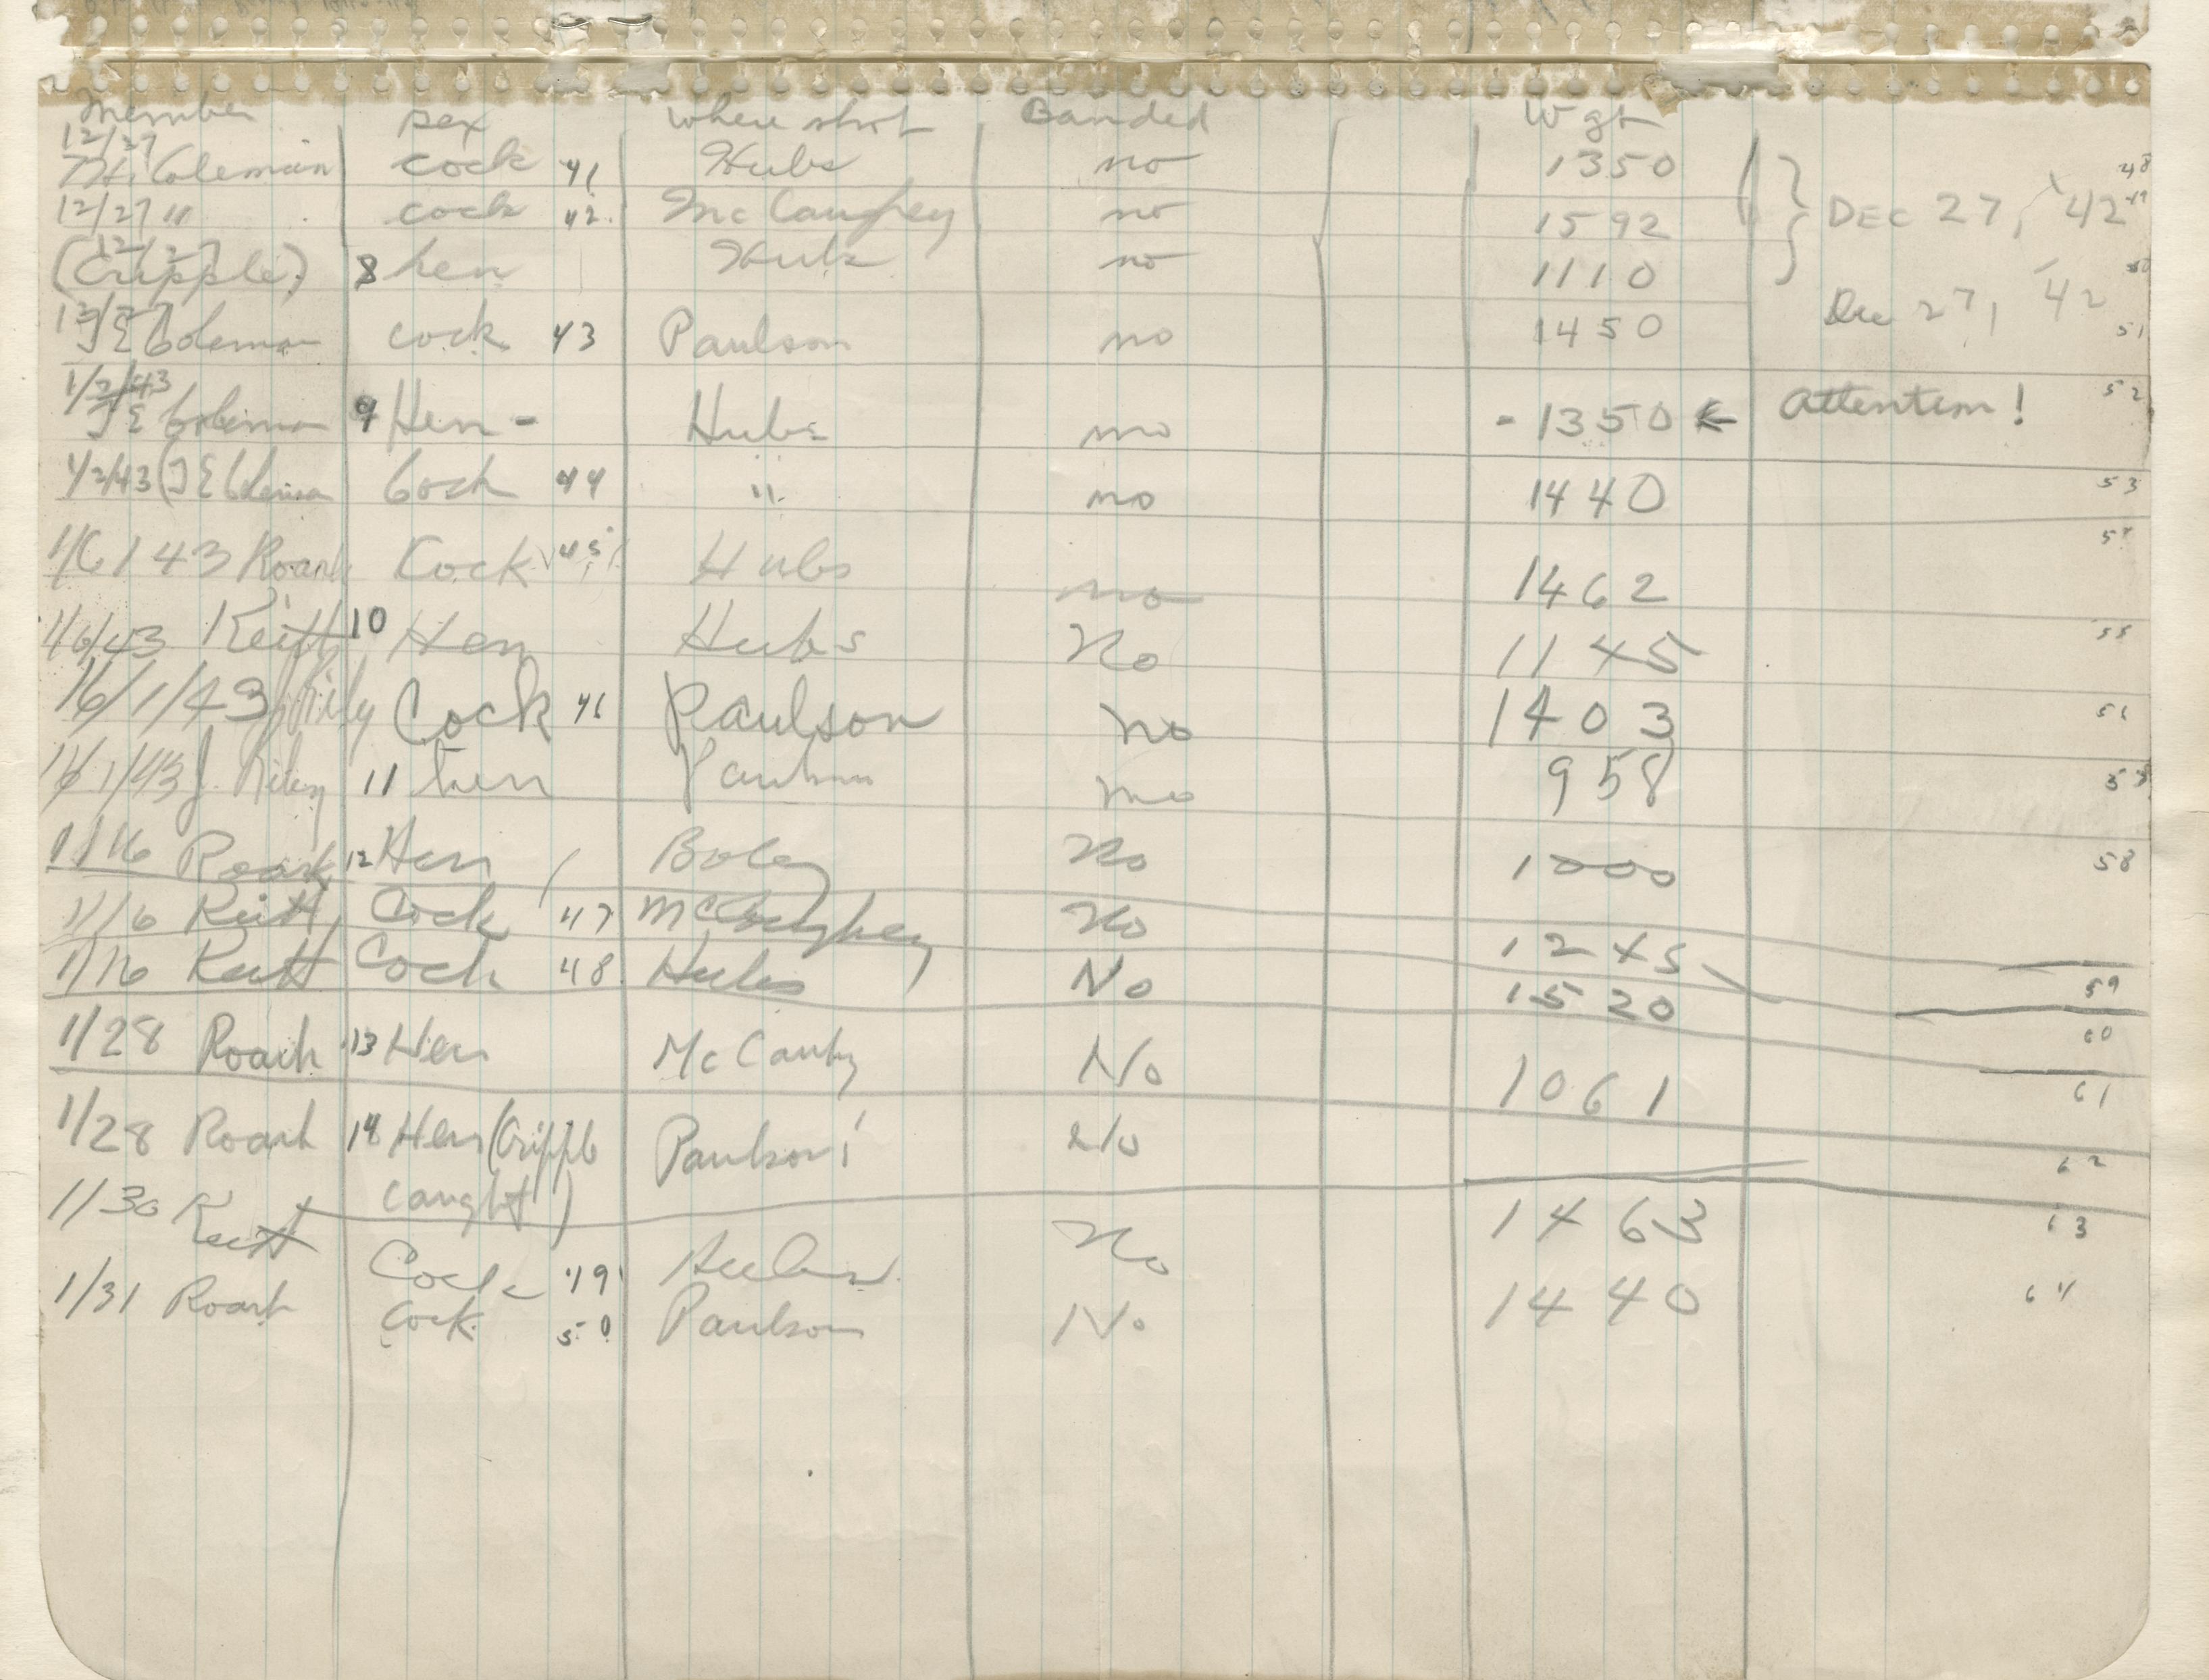 Member sex where shot Banded Wgt
12/27
T.H. Coleman cock 41 Hubs no 1350 48
12/27 " cock 42 McCaughey no 1592 DEC 27, '42 49
12/27
(Cripple) 8 hen Hubs no 1110 50
12/27
J E Coleman cock 43 Paulson no 1450 Dec 27, '42 51
1/2/43
J E Coleman 9 Hen - Hubs no - 1350 ← Attention! 52
1/2/43 (J E Coleman Cock 44 " no 1440 53
1/6/43 Roark Cock 45 Hubs no 1462 54
1/6/43 Keith 10 Hen Hubs No 1145 55
16/1/43 Rily Cock 46 Paulson no 1403 56
16/1/43 J. Riley 11 hen Paulson no 958 57
1/16 Roark 12 Hen Boley No 1000 58
1/16 Keith Cock 47 McCaughey No 1245 59
1/16 Keith Cock 48 Hubs No 1520 60
1/28 Roark 13 Hen McCauhy No 1061 61
1/28 Roark 14 Hen (Cripple Paulson No 62
caught)
1/30 Keith Cock 49 Hubs No 1463 63
1/31 Roark Cock 50 Paulson No 1440 64